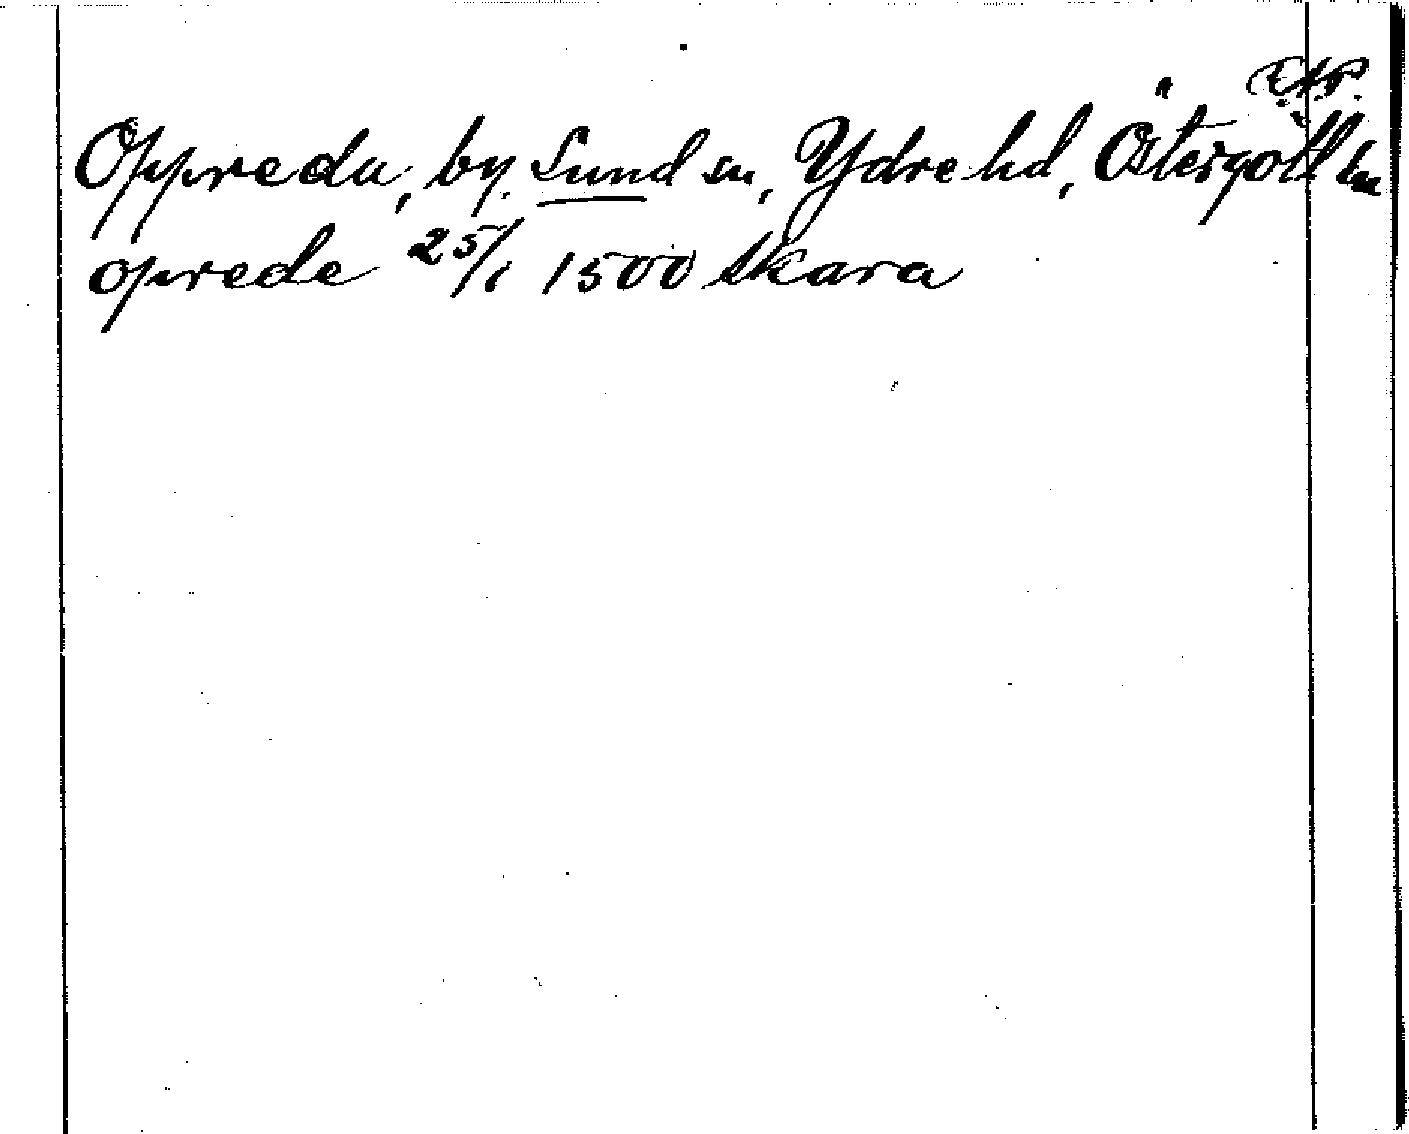 Oppreda, by. Sund sn, Ydre hd, Östergötl län
oprede 25/1 1500 Skara